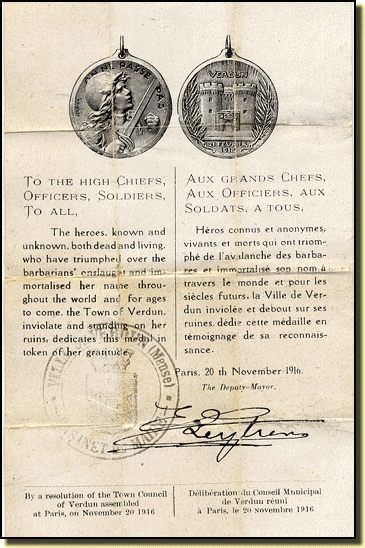 ON NE PASSE PAS
VERDUN
21 FEVRIER
1916
TO THE HIGH CHIEFS,
OFFICERS, SOLDIERS,
TO ALL,
The heroes, known and
unknown, both dead and living,
who have triumphed over the
barbarians' onslaught and im-
mortalised her name throughout
the world and for ages
to come, the Town of Verdun,
inviolate and standing on her
ruins, dedicates this medal in
token of her gratitude.
AUX GRANDS CHEFS,
AUX OFFICIERS, AUX
SOLDATS, A TOUS,
Héros connus et anonymes,
vivants et morts qui ont triom-
phé de l'avalanche des barba-
res et immortalisé son nom à
travers le monde et pour les
siècles futurs, la Ville de Ver-
dun inviolée et debout sur ses
ruines, dédie cette médaille en
témoignage de sa reconnais-
sance.
VILLE DE VERDUN (Meuse)
Paris, 20 th November 1916.
The Deputy-Mayor,
By a resolution of the Town Council
of Verdun assembled
at Paris, on November 20 1916
Délibération du Conseil Municipal
de Verdun réuni
à Paris, le 20 novembre 1916